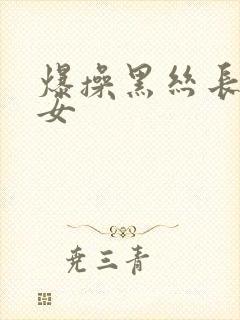 爆操黑丝長
女
尭三青